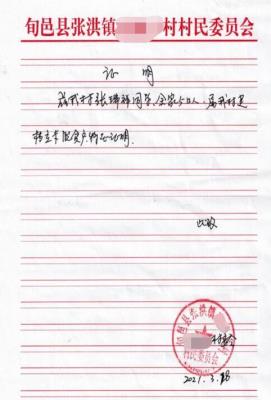 旬邑县张洪镇 村村民委员会
证明
兹我村 张 祥同学，全家5口人，属我村建
档立卡脱贫户 特此证明
此致
旬邑县张洪镇
村民委员会
2021.3.